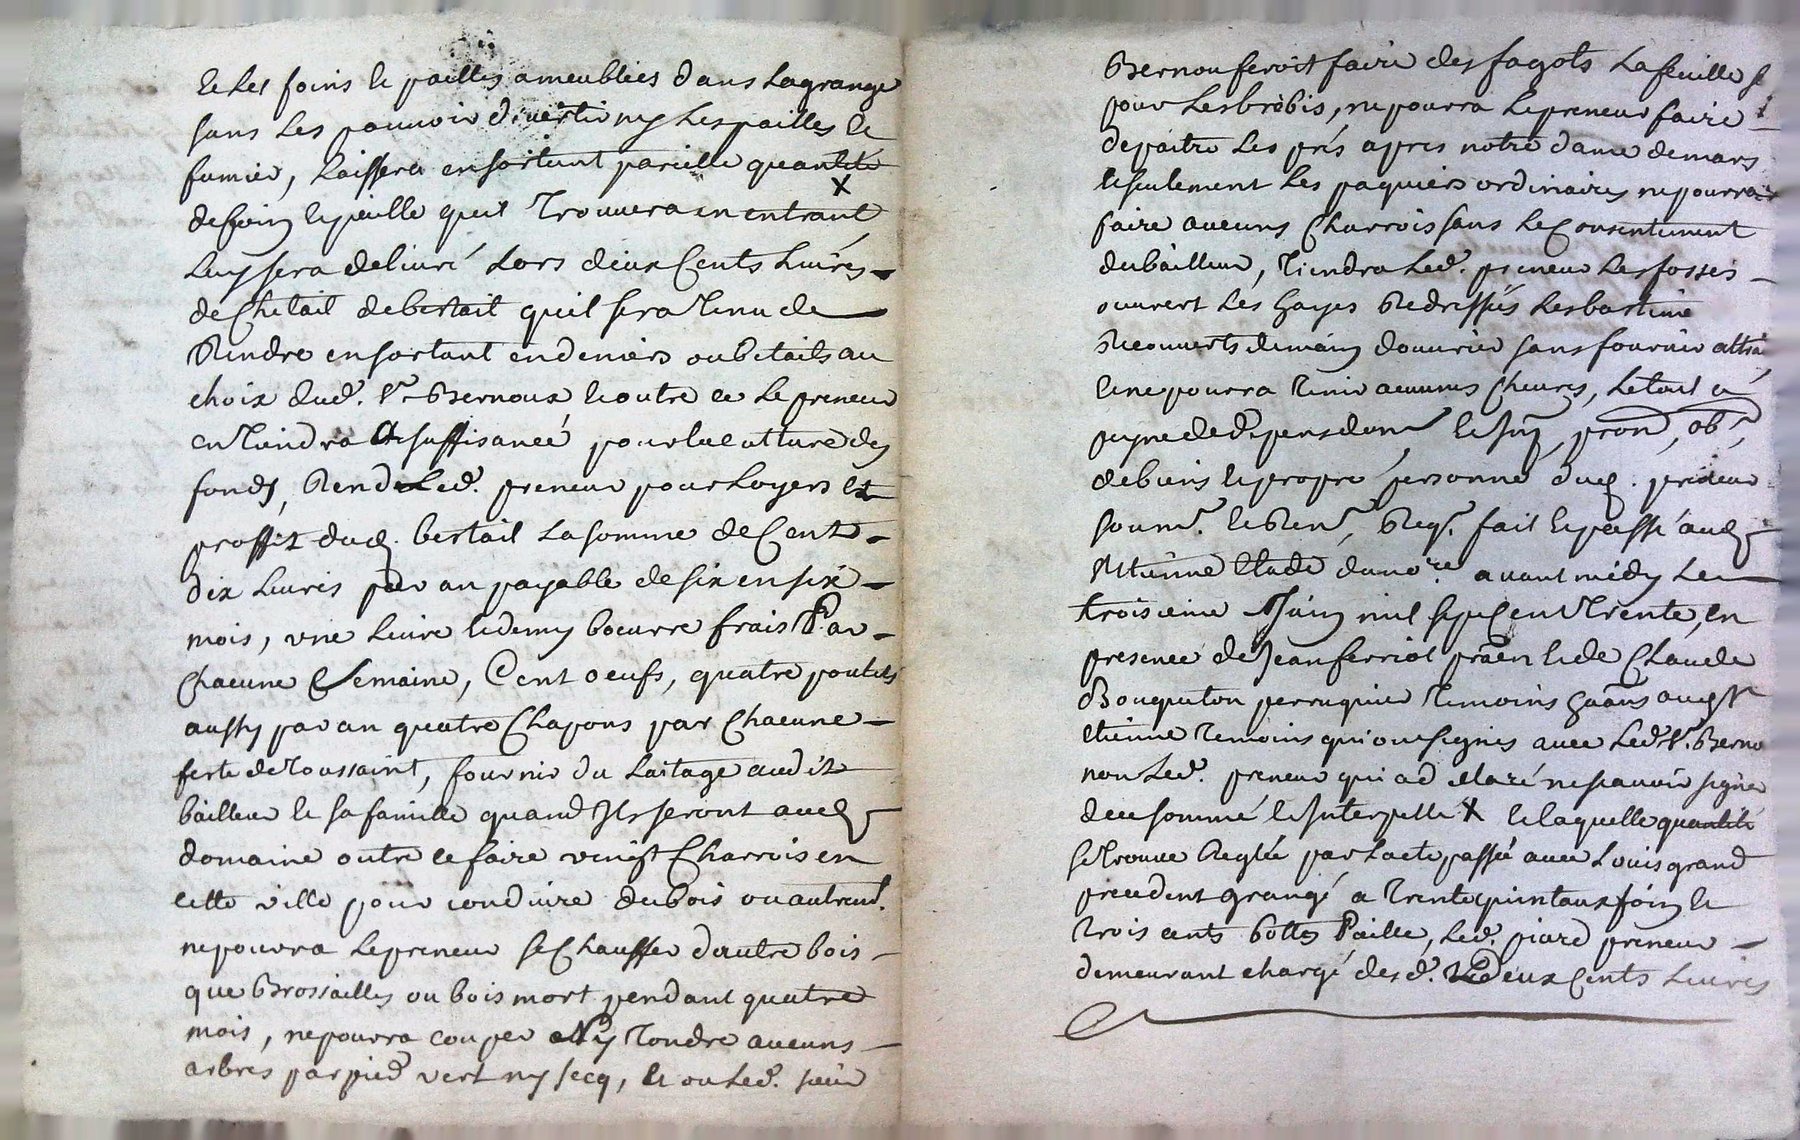 et les foins et pailles ameublies dans la grange
sans les pouvoir divertir ny les pailles et
fumier, laissera en sortant pareille quantité
de foin et paille qu'il trouvera en entrant X
luy sera delivré lors deux Cents livres
de Chetail de bestail quil sera tenu de
Rendre en sortant en deniers ou betails au
choix dud. Sr Bernoux et outre ce le preneur
en tiendra a suffisance pour la culture des
fonds, Rendra led. preneur pour loyers et
proffit dud. bestail la somme de Cent
dix livres par an payable de six en six
mois, une livre et demy beurre frais Par
Chacune Semaine, Cent oeufs, quatre poulets
aussy par an quatre Chapons par Chacune
feste de Toussaint, fournir du laitage audit
bailleur et sa famille quand Ils seront aud.
domaine outre ce faire vingt Charrois en
cette ville pour conduire du bois ou autremt.
ne pourra le preneur se Chauffer d'autre bois
que Brossailles ou bois mort pendant quatre
mois, ne pourra couper Ny tondre aucuns
arbres par pied vert ny secq, et ou led. sieur
Bernou feroit faire des fagots la feuille
pour les brebis, ne pourra le preneur faire
depaitre les prés apres notre dame de mars
et seulement les paquiers ordinaires ne pourra
faire aucuns Charrois sans le Consentement
du bailleur, tiendra led. preneur les fosses
ouvert les hayes Redressés les bastimt
Recouverts de main d'ouvrier sans fournir
et ne pourra tenir aucunes Chevres, le tout a
peyne de d. pens dom. et Int. prom, ob.,
de biens et propre personne dud. preneur
soum. et Ren., Req. fait et passé aud.
St etienne Etude du nore. avant midy le
troisieme Juin mil sept Cent Trente, en
presence de Jean ferriot praen et de Claude
Bouqueton perruquier temoins haans aud. St
etienne temoins qui ont signés avec led. Sr. Bernou
non led. preneur qui a declaré ne scavoir signer
de ce sommé et Interpellé X et laquelle quantité
se trouve Reglée par l'acte passé avec Louis grand
precedent grangé a trente quintaux foin et
trois cents bottes Paille, led. piard preneur
demeurant chargé desd. deux Cents livres